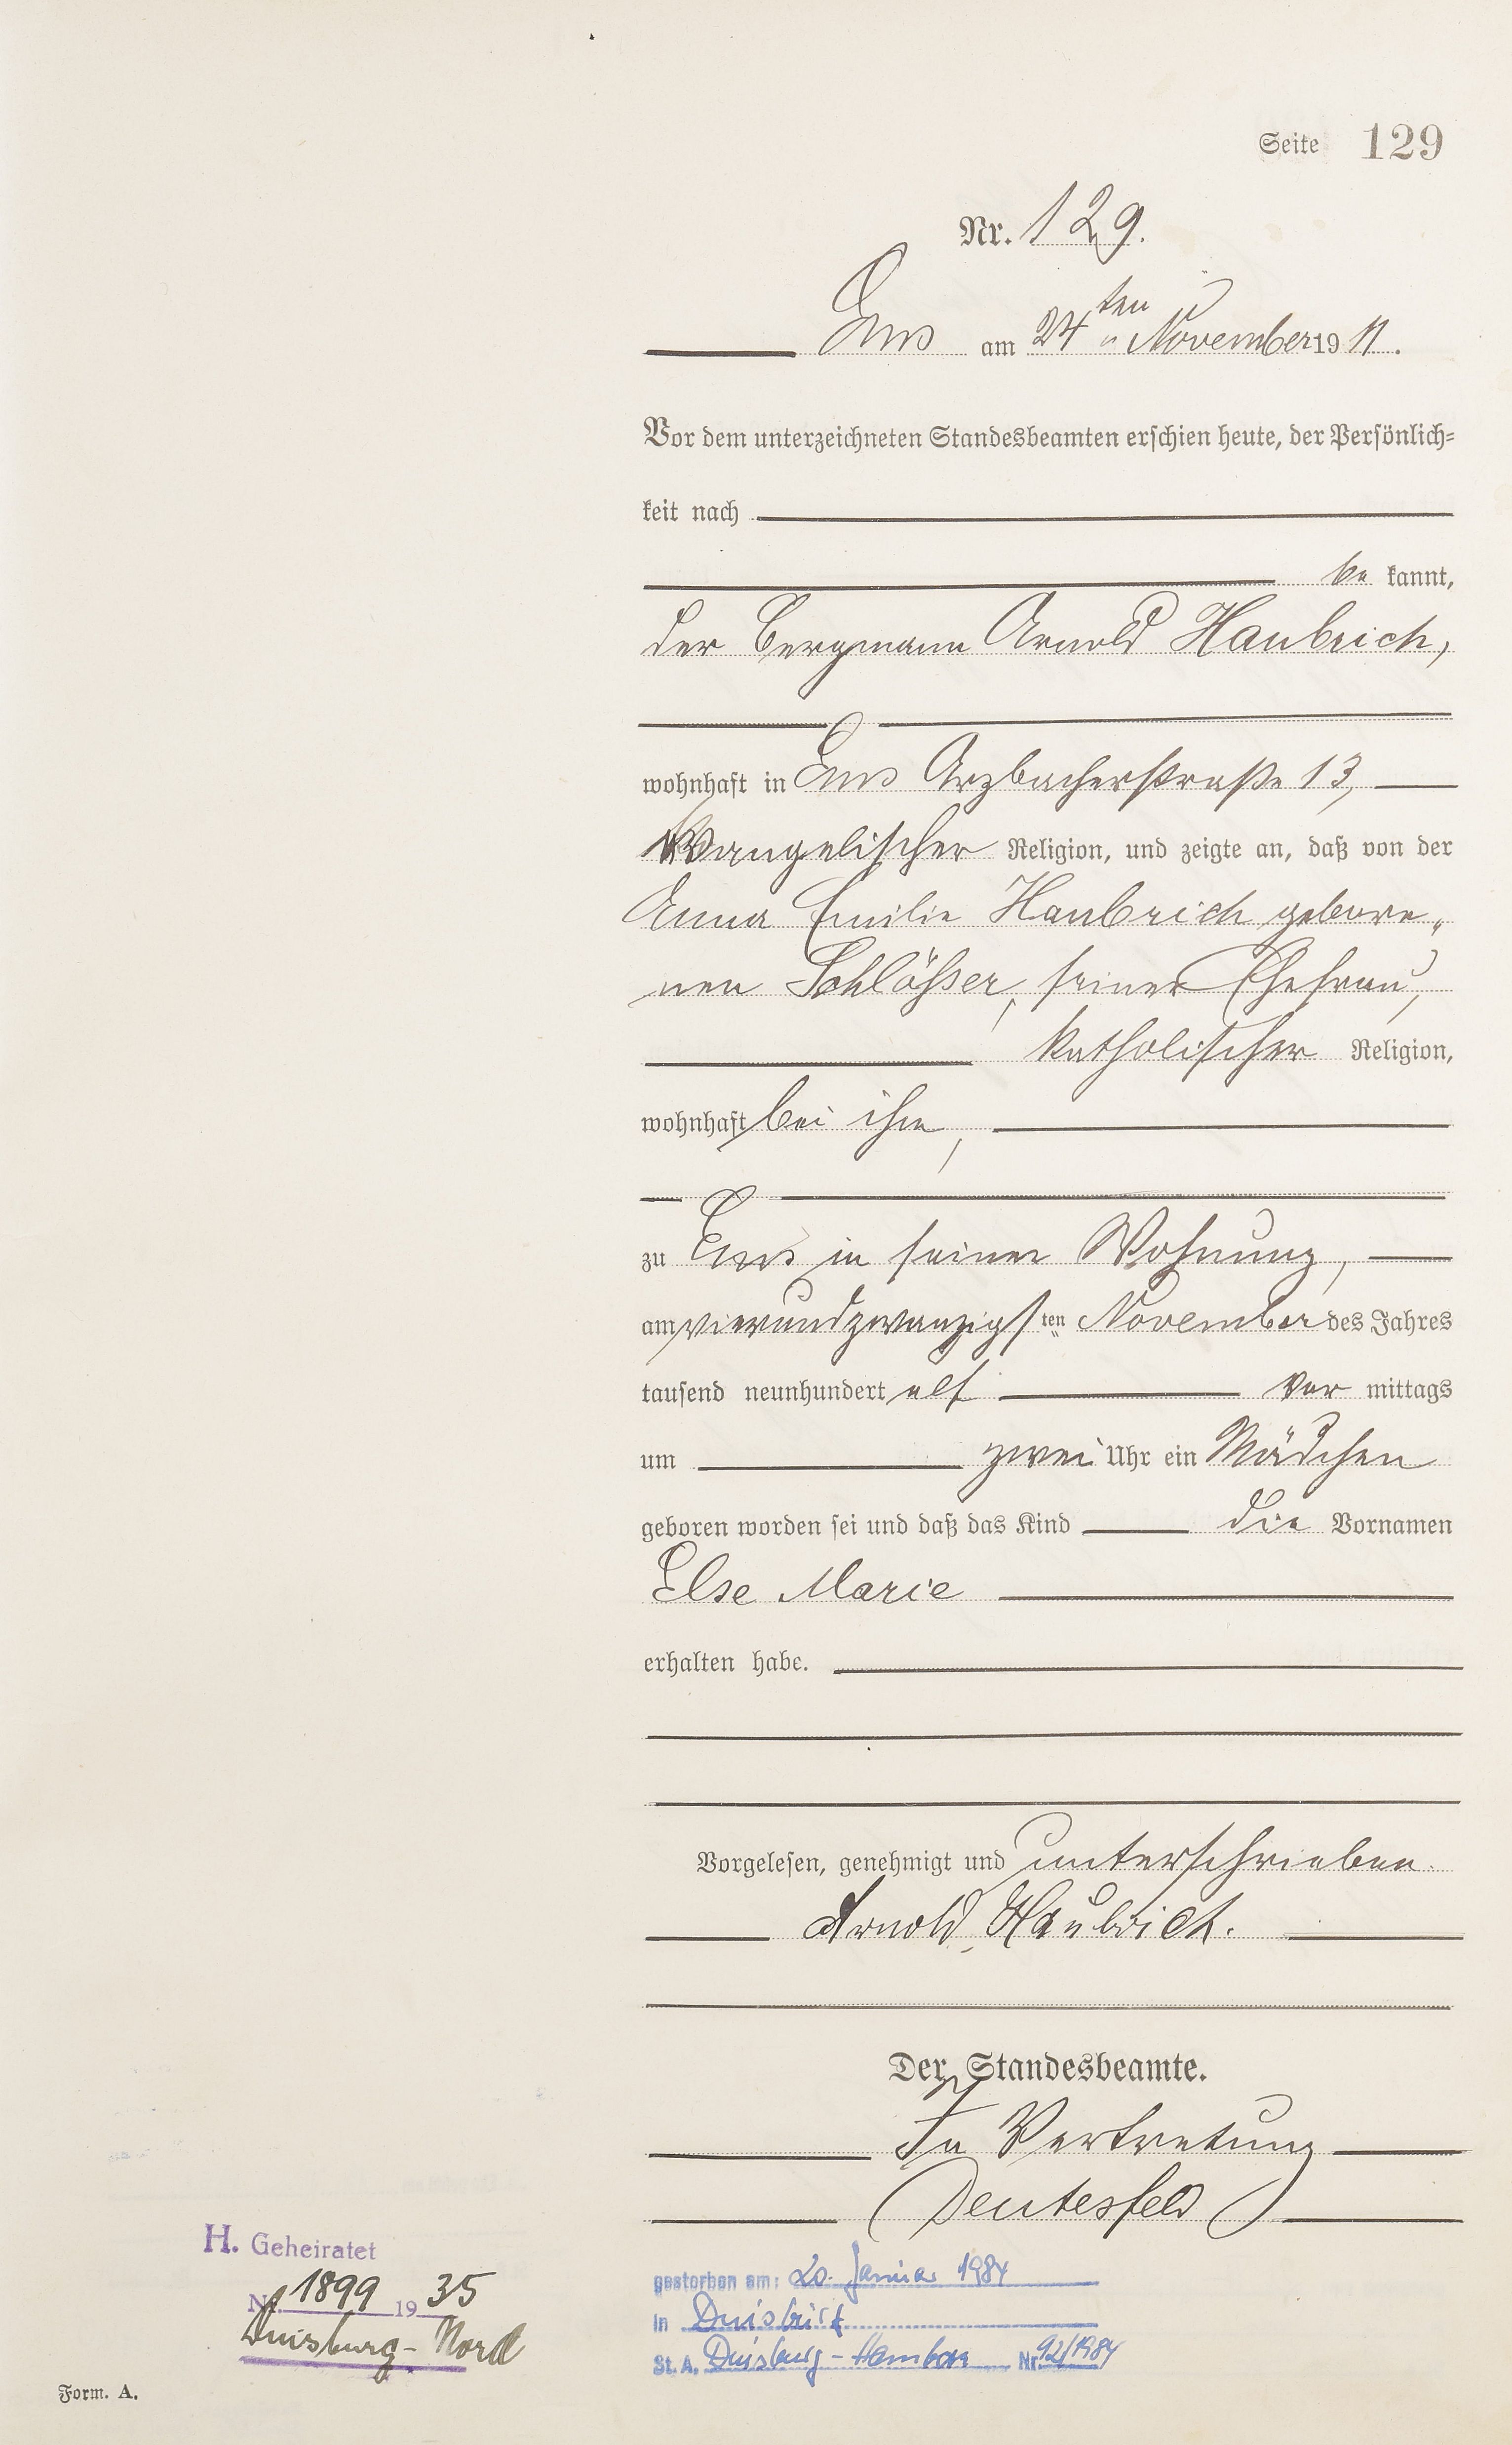 Seite 129
Nr. 129.
Ems am 24ten November 1911.
Vor dem unterzeichneten Standesbeamten erschien heute, der Persönlich-
keit nach
be kannt,
der Bergmann Arnold Haubrich,
wohnhaft in Ems Arzbacherstraße 13,
evangelischer Religion, und zeigte an, daß von der
Anna Emilie Haubrich gebore„
nen Schlößer, seiner Ehefrau,
katholischer Religion,
wohnhaft bei ihm,
zu Ems in seiner Wohnung,
am vierundzwanzigsten November des Jahres
tausend neunhundert elf vor mittags
um zwei Uhr ein Mädchen
geboren worden sei und daß das Kind die Vornamen
Else Marie
erhalten habe.
Vorgelesen, genehmigt und unterschrieben.
Arnold Haubrich.
Der Standesbeamte.
In Vertretung
(Deutesfeld)
H. Geheiratet
Nr. 1899 1935
Duisburg-Nord
gestorben am: 20. Januar 1984
in Duisburg
St. A. Duisburg-Hamborn Nr. 92/1984
Form. A.